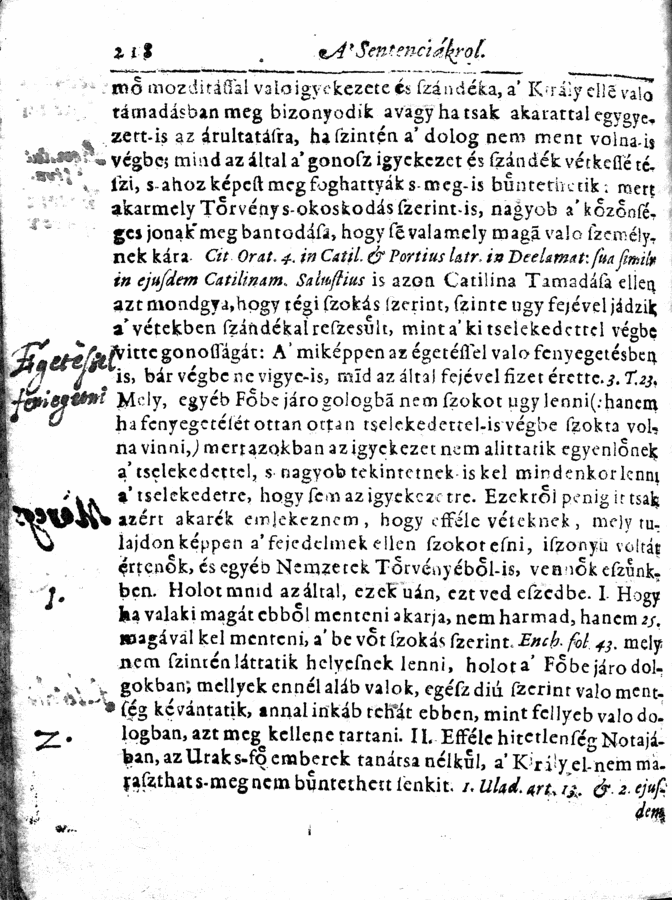 218 A' Sentenciákrol.
mõ mozditáſſal valo igyekezete és ſzándéka, a' Király ellẽ valo
támadásban meg bizonyodik avagy ha tsak akarattal egygye-
zett-is az árultatáſra, ha ſzintén a' dolog nem ment volna-is
végbe; mind az által a' gonosz igyekezet és ſzándék vétkeſſé té-
ſzi, s-ahoz képeſt meg foghattyák s-meg-is bűntethetik: mert
akarmely Tőrvény s-okoskodás ſzerint-is, nagyob a' kőzőnſé-
ges jonak meg bantodáſa, hogy ſẽ valamely magã valo ſzemély-
nek kára. Cit Orat. 4. in Catil. & Portius latr. in Deelamat: ſua ſimilr
in ejuſdem Catilinam. Saluſtius is azon Catilina Tamadáſa ellen
azt mondgya, hogy régi ſzokás ſzerint, ſzinte ugy fejével jádzik
a' vétekben ſzándékal reſzesűlt, mint a' ki tselekedettel végbe
vitte gonoſſágát: A' miképpen az égetéſſel valo fenyegetésben
Égetéſſel
is, bár végbe ne vigye-is, mĩd az által fejével fizet érette. 3. T. 23.
feniegetni
Mely, egyéb Főbe járo gologbã nem ſzokot ugy lenni (: hanem
ha fenyegetéſét ottan ottan tselekedettel-is végbe ſzokta vol-
na vinni,) mert azokban az igyekezet nem alittatik egyenlőnek
a' tselekedettel, s nagyob tekintetnek-is kel mindenkor lenni
a' tselekedetre, hogy ſem az igyekezetre. Ezekről penig it tsak
azért akarék emlekeznem, hogy efféle véteknek, mely tu-
lajdon képpen a' fejedelmek ellen ſzokot eſni, iſzonyu voltát
értenők, és egyéb Nemzetek Tőrvényéből-is, vennők eſzűnk-
ben. Holot mnid az által, ezek uán, ezt ved eſzedbe. I. Hogy
1.
ha valaki magát ebből menteni akarja, nem harmad, hanem 25.
magával kel menteni, a' be vőt ſzokás ſzerint. Ench. fol. 43. mely
nem ſzintén láttatik helyeſnek lenni, holot a' Főbe járo dol-
gokban; mellyek ennél aláb valok, egéſz diú ſzerint valo ment-
ſég kévántatik, annal inkáb tehát ebben, mint fellyeb valo do-
2.
logban, azt meg kellene tartani. II. Efféle hitetlenſég Notajá-
ban, az Urak s-fő emberek tanátsa nélkűl, a' Király el-nem ma-
raſzthat s-meg nem bűntethett ſenkit. 1. Ulad. art. 13. & 2. ejuſ-
dem